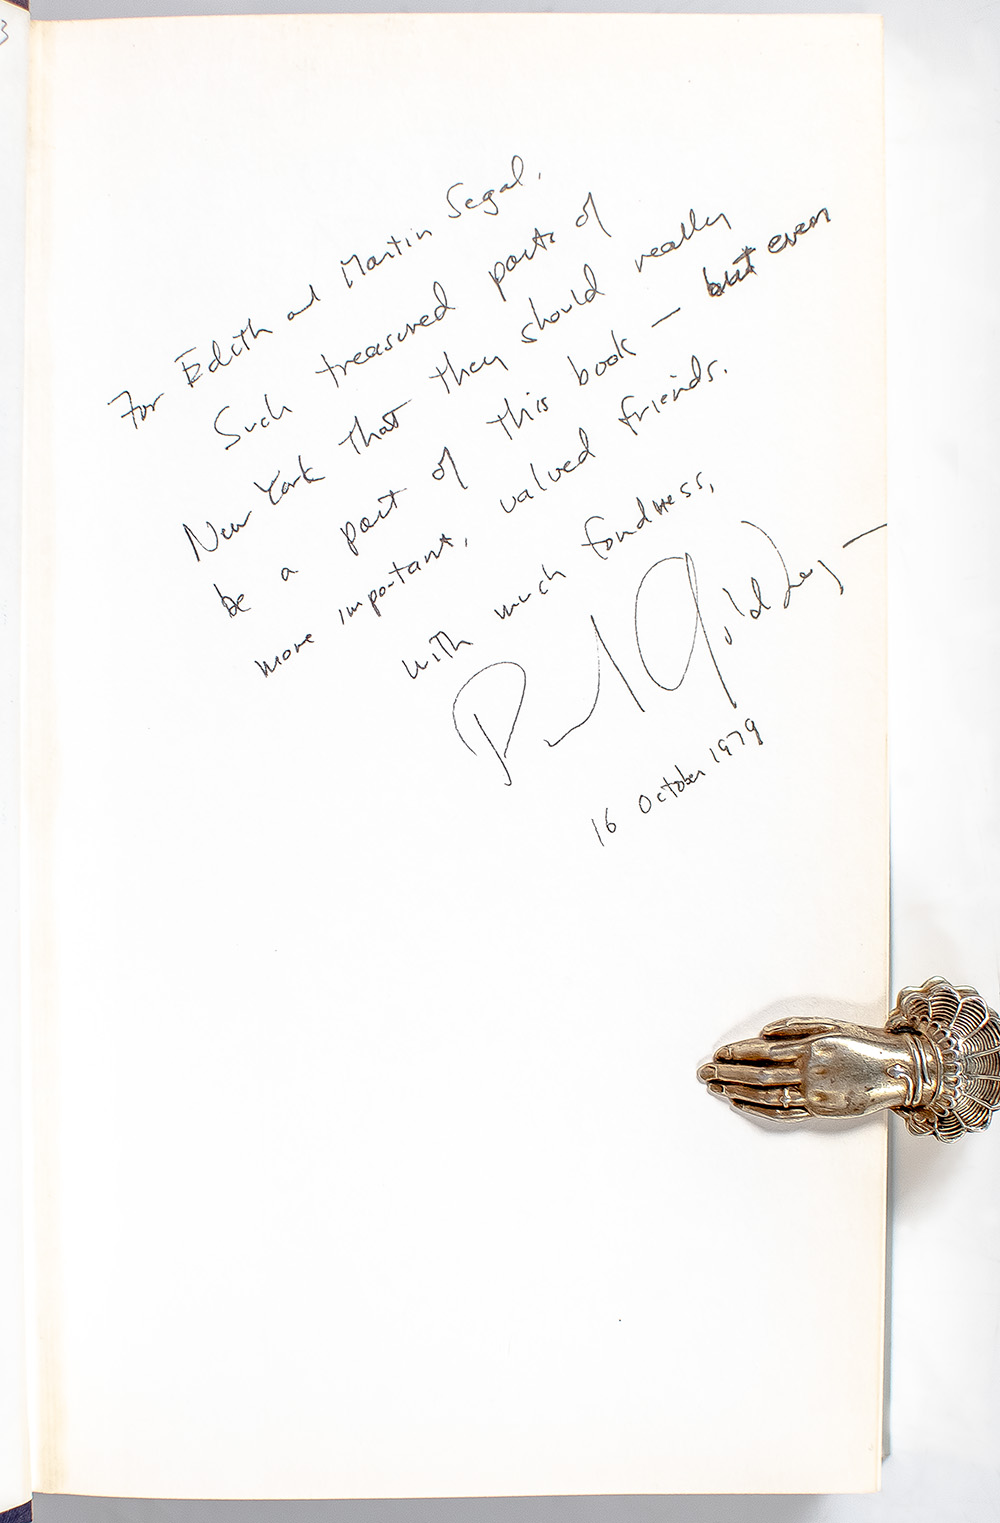 3
For Edith and Martin Segal,
Such treasured parts of
New York that they should really
be a part of this book — but even
more important, valued friends.
with much fondness,
Paul Goldberger
16 October 1979